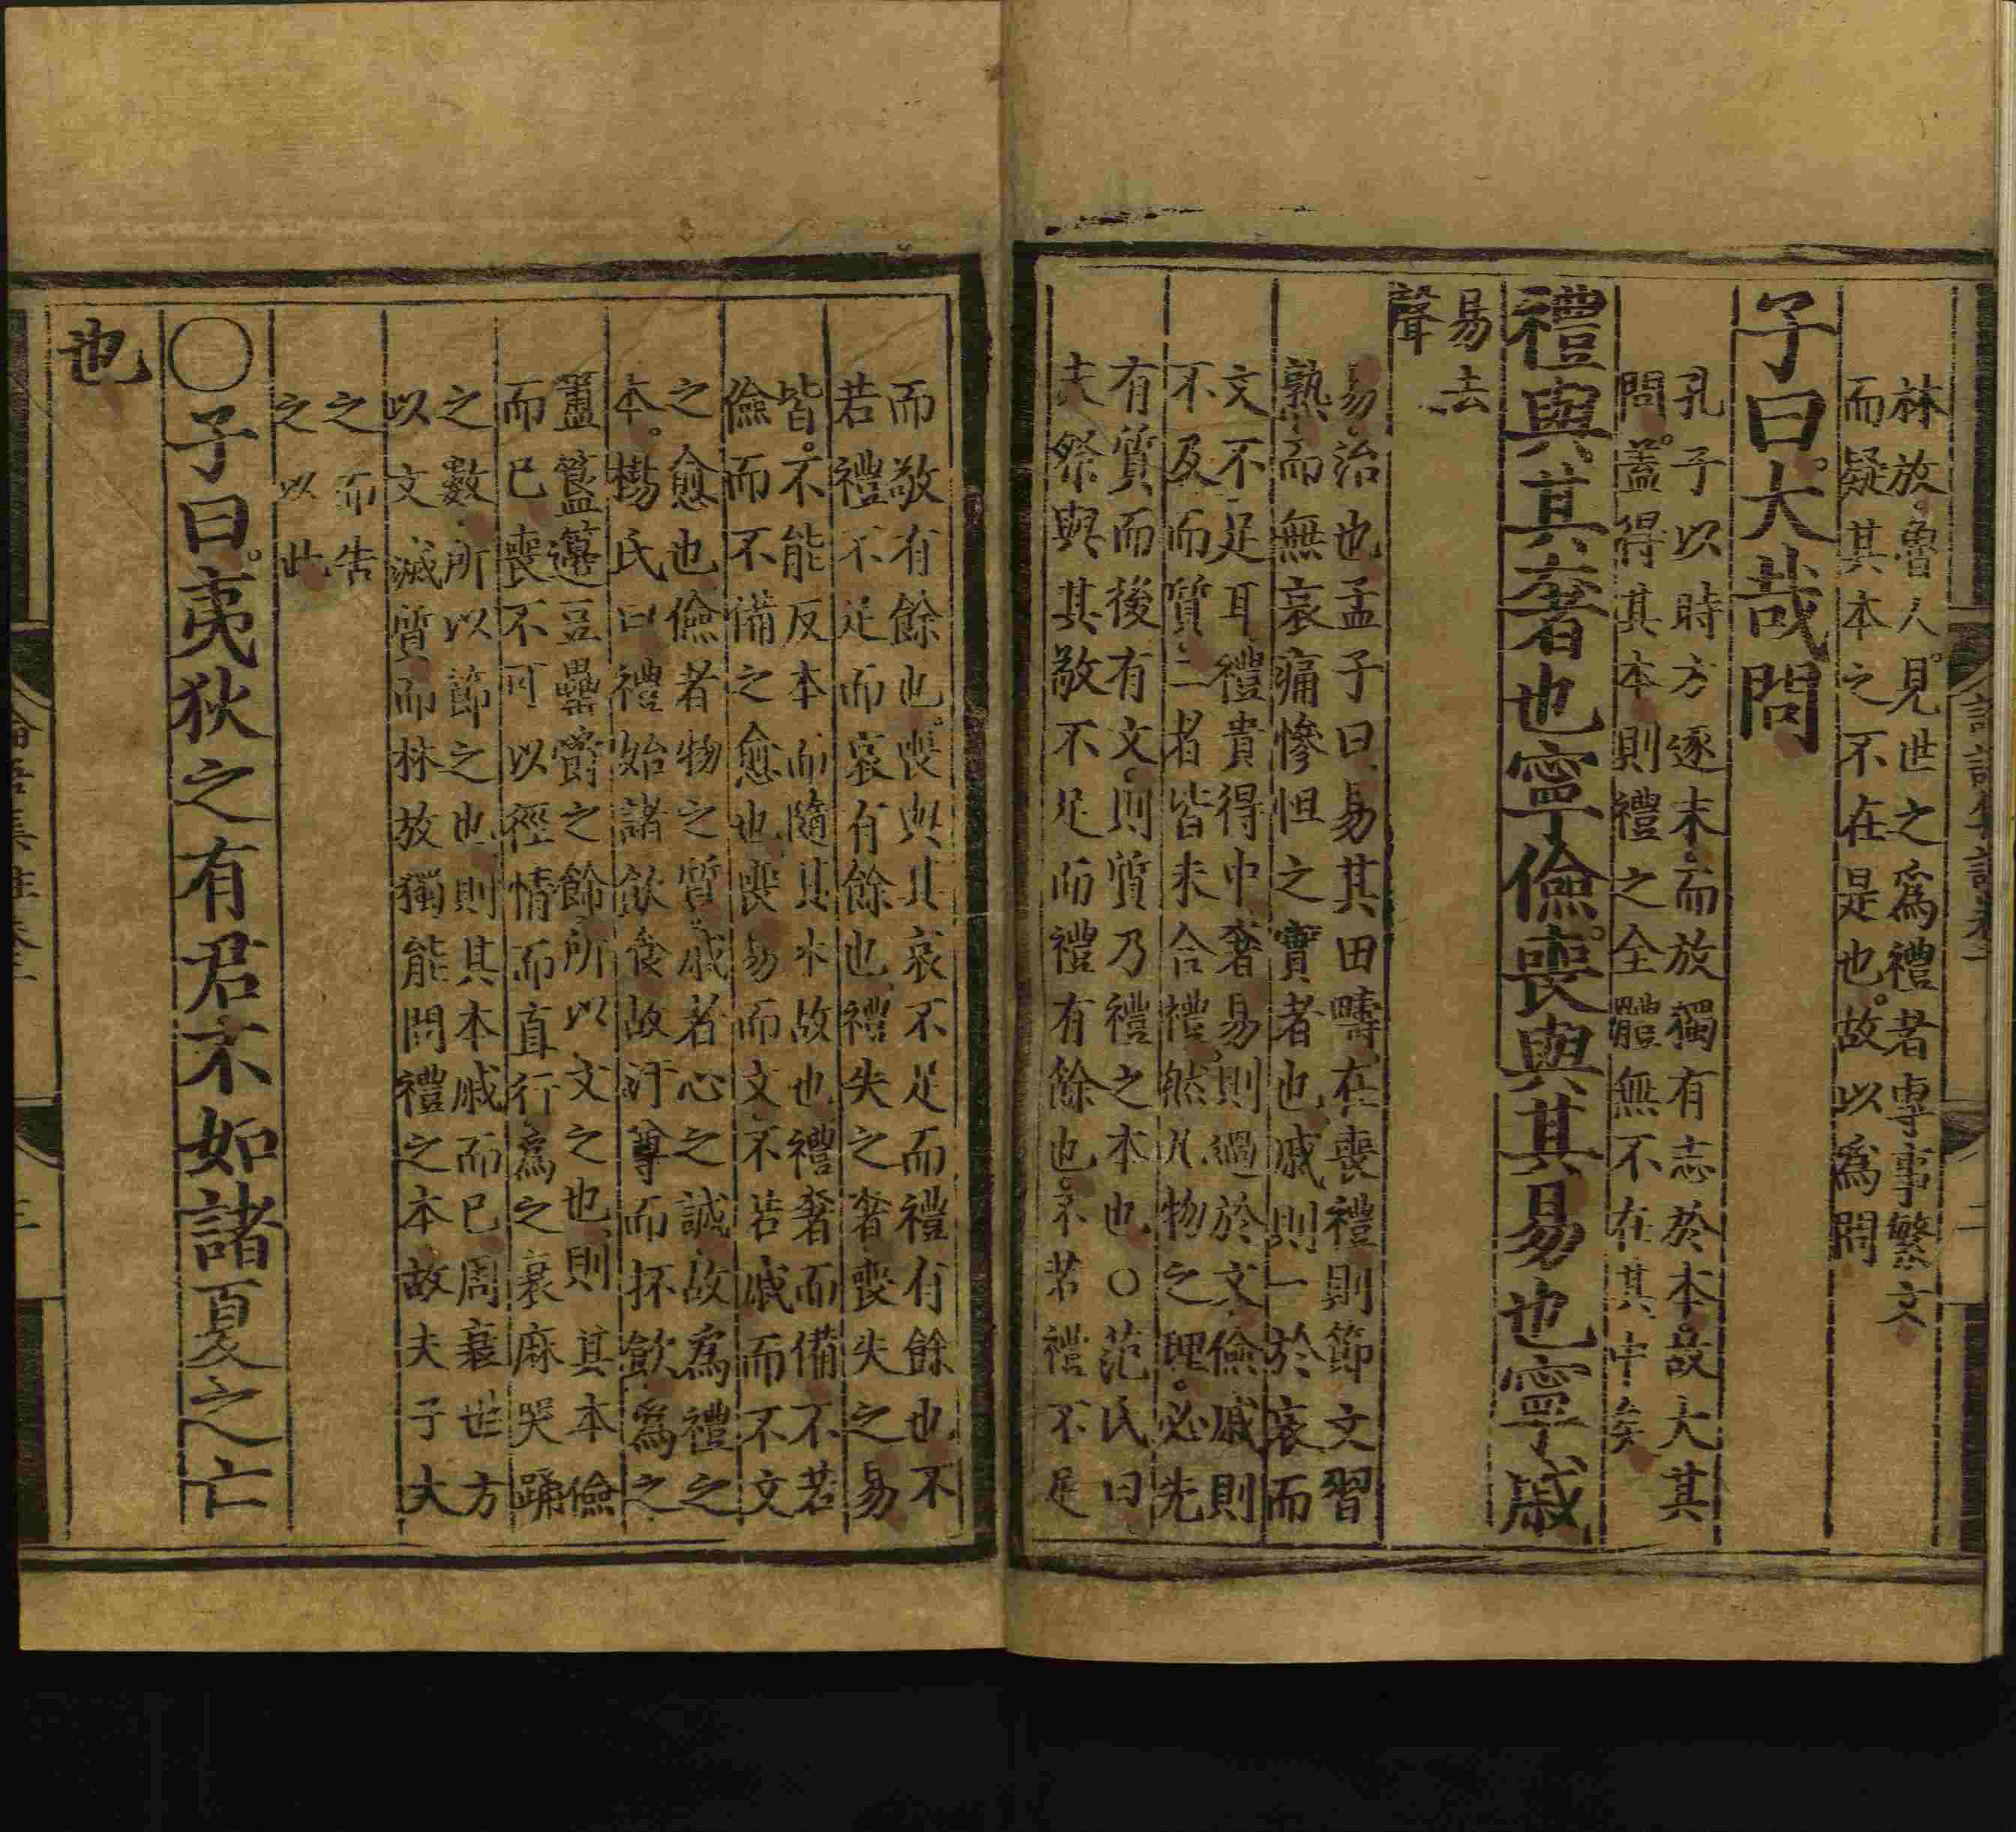 林放魯人見世之爲禮者專事繁文
而疑其本之不在是也故以爲問
子曰大哉問
孔子以時方逐末而放獨有志於本故大其
問蓋得其本則禮之全體無不在其中矣
禮與其奢也寧儉喪與其易也寧戚
易去
聲
易治也孟子曰易其田疇在喪禮則節文習
熟而無哀痛慘怛之實者也戚則一於哀而
文不足耳禮貴得中奢易則過於文儉戚則
不及而質二者皆未合禮然凡物之理必先
有質而後有文則質乃禮之本也○范氏曰
夫祭與其敬不足而禮有餘也不若禮不足
而敬有餘也喪與其哀不足而禮有餘也不
若禮不足而哀有餘也禮失之奢喪失之易
皆不能反本而隨其末故也禮奢而備不若
儉而不備之愈也喪易而文不若戚而不文
之愈也儉者物之質戚者心之誠故爲禮之
本楊氏曰禮始諸飲食故汙尊而抔飲爲之
簠簋籩豆罍爵之飾所以文之也則其本儉
而已喪不可以徑情而直行爲之衰麻哭踊
之數所以節之也則其本戚而已周衰世方
以文滅質而林放獨能問禮之本故夫子大
之而告
之以此
○子曰夷狄之有君不如諸夏之亡
也